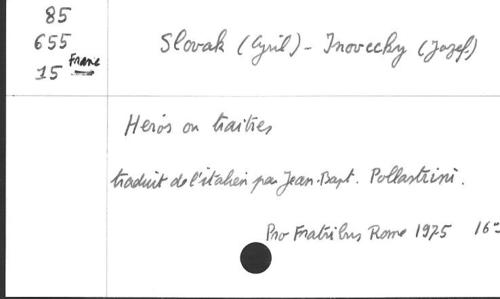 85
655
15 Franc
Slovak (Cyril) - Inovecky (Jozef.)
Herós ou traitres
traduit de l'italien par Jean-Bapt. Pollastrini.
Pro Fratribus Rome 1975 16°